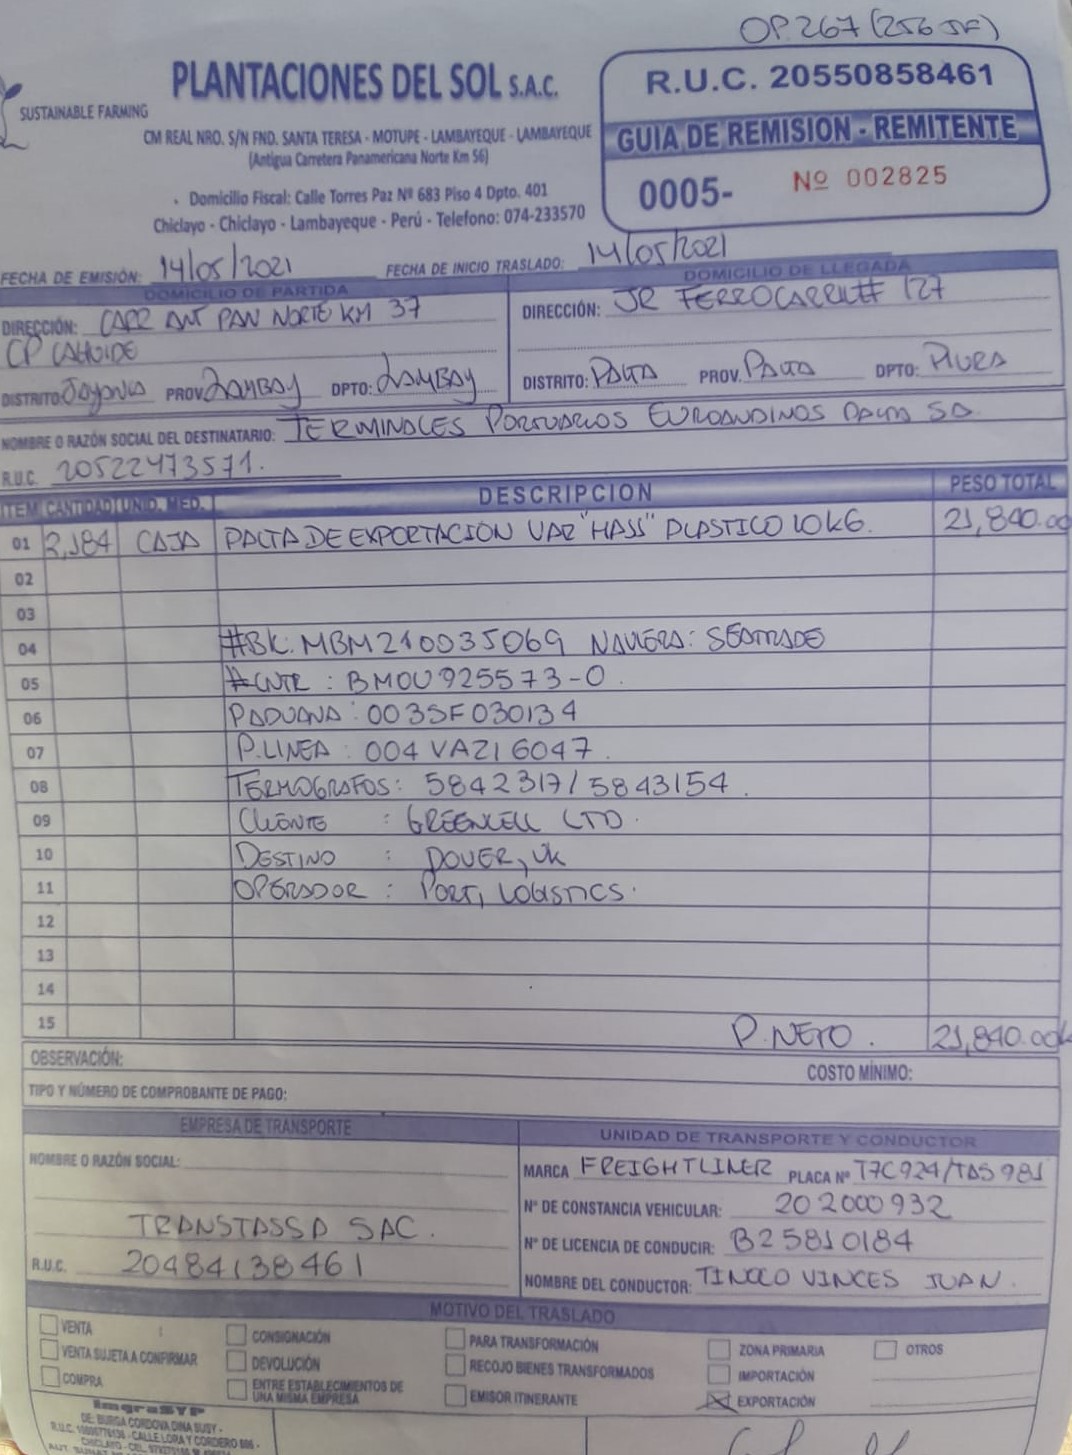 OP.267 (256 JF)
SUSTAINABLE FARMING
PLANTACIONES DEL SOL S.A.C.
CM REAL NRO. S/N FND. SANTA TERESA - MOTUPE - LAMBAYEQUE - LAMBAYEQUE
(Antigua Carretera Panamericana Norte Km 56)
. Domicilio Fiscal: Calle Torres Paz Nº 683 Piso 4 Dpto. 401
Chiclayo - Chiclayo - Lambayeque - Perú - Telefono: 074-233570
R.U.C. 20550858461
GUIA DE REMISION - REMITENTE
0005- Nº 002825
FECHA DE EMISIÓN: 14/05/2021 FECHA DE INICIO TRASLADO: 14/05/2021
DOMICILIO DE PARTIDA DOMICILIO DE LLEGADA
DIRECCIÓN: CARR ANT PAN NORTE KM 37
CP CAHUIDE
DIRECCIÓN: JR FERROCARRIL# 127
DISTRITO: Jayanca PROV. LAMBAY DPTO: LAMBAY
DISTRITO: PAITA PROV. PAITA DPTO: PIURA
NOMBRE O RAZÓN SOCIAL DEL DESTINATARIO: TERMINALES PORTUARIOS EUROANDINOS PAITA SA
R.U.C. 20522473571.
ITEM CANTIDAD UNID. MED. DESCRIPCION PESO TOTAL
01 2,184 CAJA PALTA DE EXPORTACION VAR "HASS" PLASTICO 10KG. 21,840.00
02
03
04 #BK: MBM210035069 NAVIERA: SEATRADE
05 #CNTR : BMOU925573-0.
06 P.ADUANA : 003SF030134
07 P.LINEA : 004VAZ16047.
08 TERMOGRAFOS: 5842317/5843154.
09 CLIENTE : GREENCELL LTD.
10 DESTINO : DOVER, UK
11 OPERADOR : PORT, LOGISTICS.
12
13
14
15 P. NETO. 21,840.00k
OBSERVACIÓN:
COSTO MÍNIMO:
TIPO Y NÚMERO DE COMPROBANTE DE PAGO:
EMPRESA DE TRANSPORTE
NOMBRE O RAZÓN SOCIAL:
TRANSTASSA SAC.
R.U.C. 20484138461
UNIDAD DE TRANSPORTE Y CONDUCTOR
MARCA FREIGHTLINER PLACA Nº T7C924/TAS981
Nº DE CONSTANCIA VEHICULAR: 202000932
Nº DE LICENCIA DE CONDUCIR: B25810184
NOMBRE DEL CONDUCTOR: TINOCO VINCES JUAN.
MOTIVO DEL TRASLADO
VENTA :
VENTA SUJETA A CONFIRMAR
COMPRA
CONSIGNACIÓN
DEVOLUCIÓN
ENTRE ESTABLECIMIENTOS DE
UNA MISMA EMPRESA
PARA TRANSFORMACIÓN
RECOJO BIENES TRANSFORMADOS
EMISOR ITINERANTE
ZONA PRIMARIA
IMPORTACIÓN
EXPORTACIÓN
OTROS
ImgraSYP
DE: BURGA CORDOVA DINA SUSY -
CALLE LORA Y CORDERO